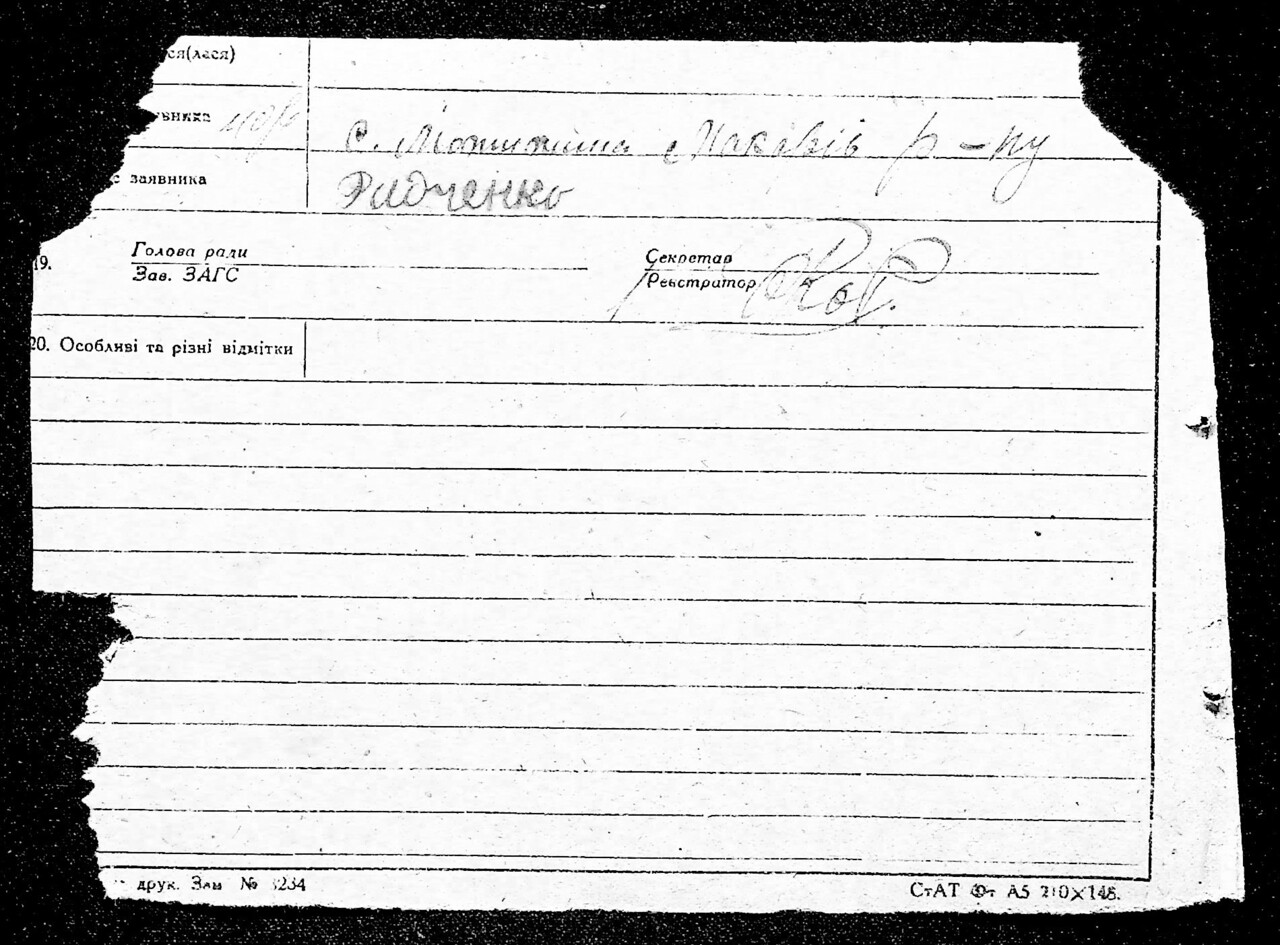 ся(лася)
вника
с. Мотижина Макарів р-ну
заявника
Радченко
19. Голова ради Секретар
Зав. ЗАГС Реєстратор
20. Особливі та різні відмітки
друк. Зам № 3234 СтАТ Фт А5 210×148.